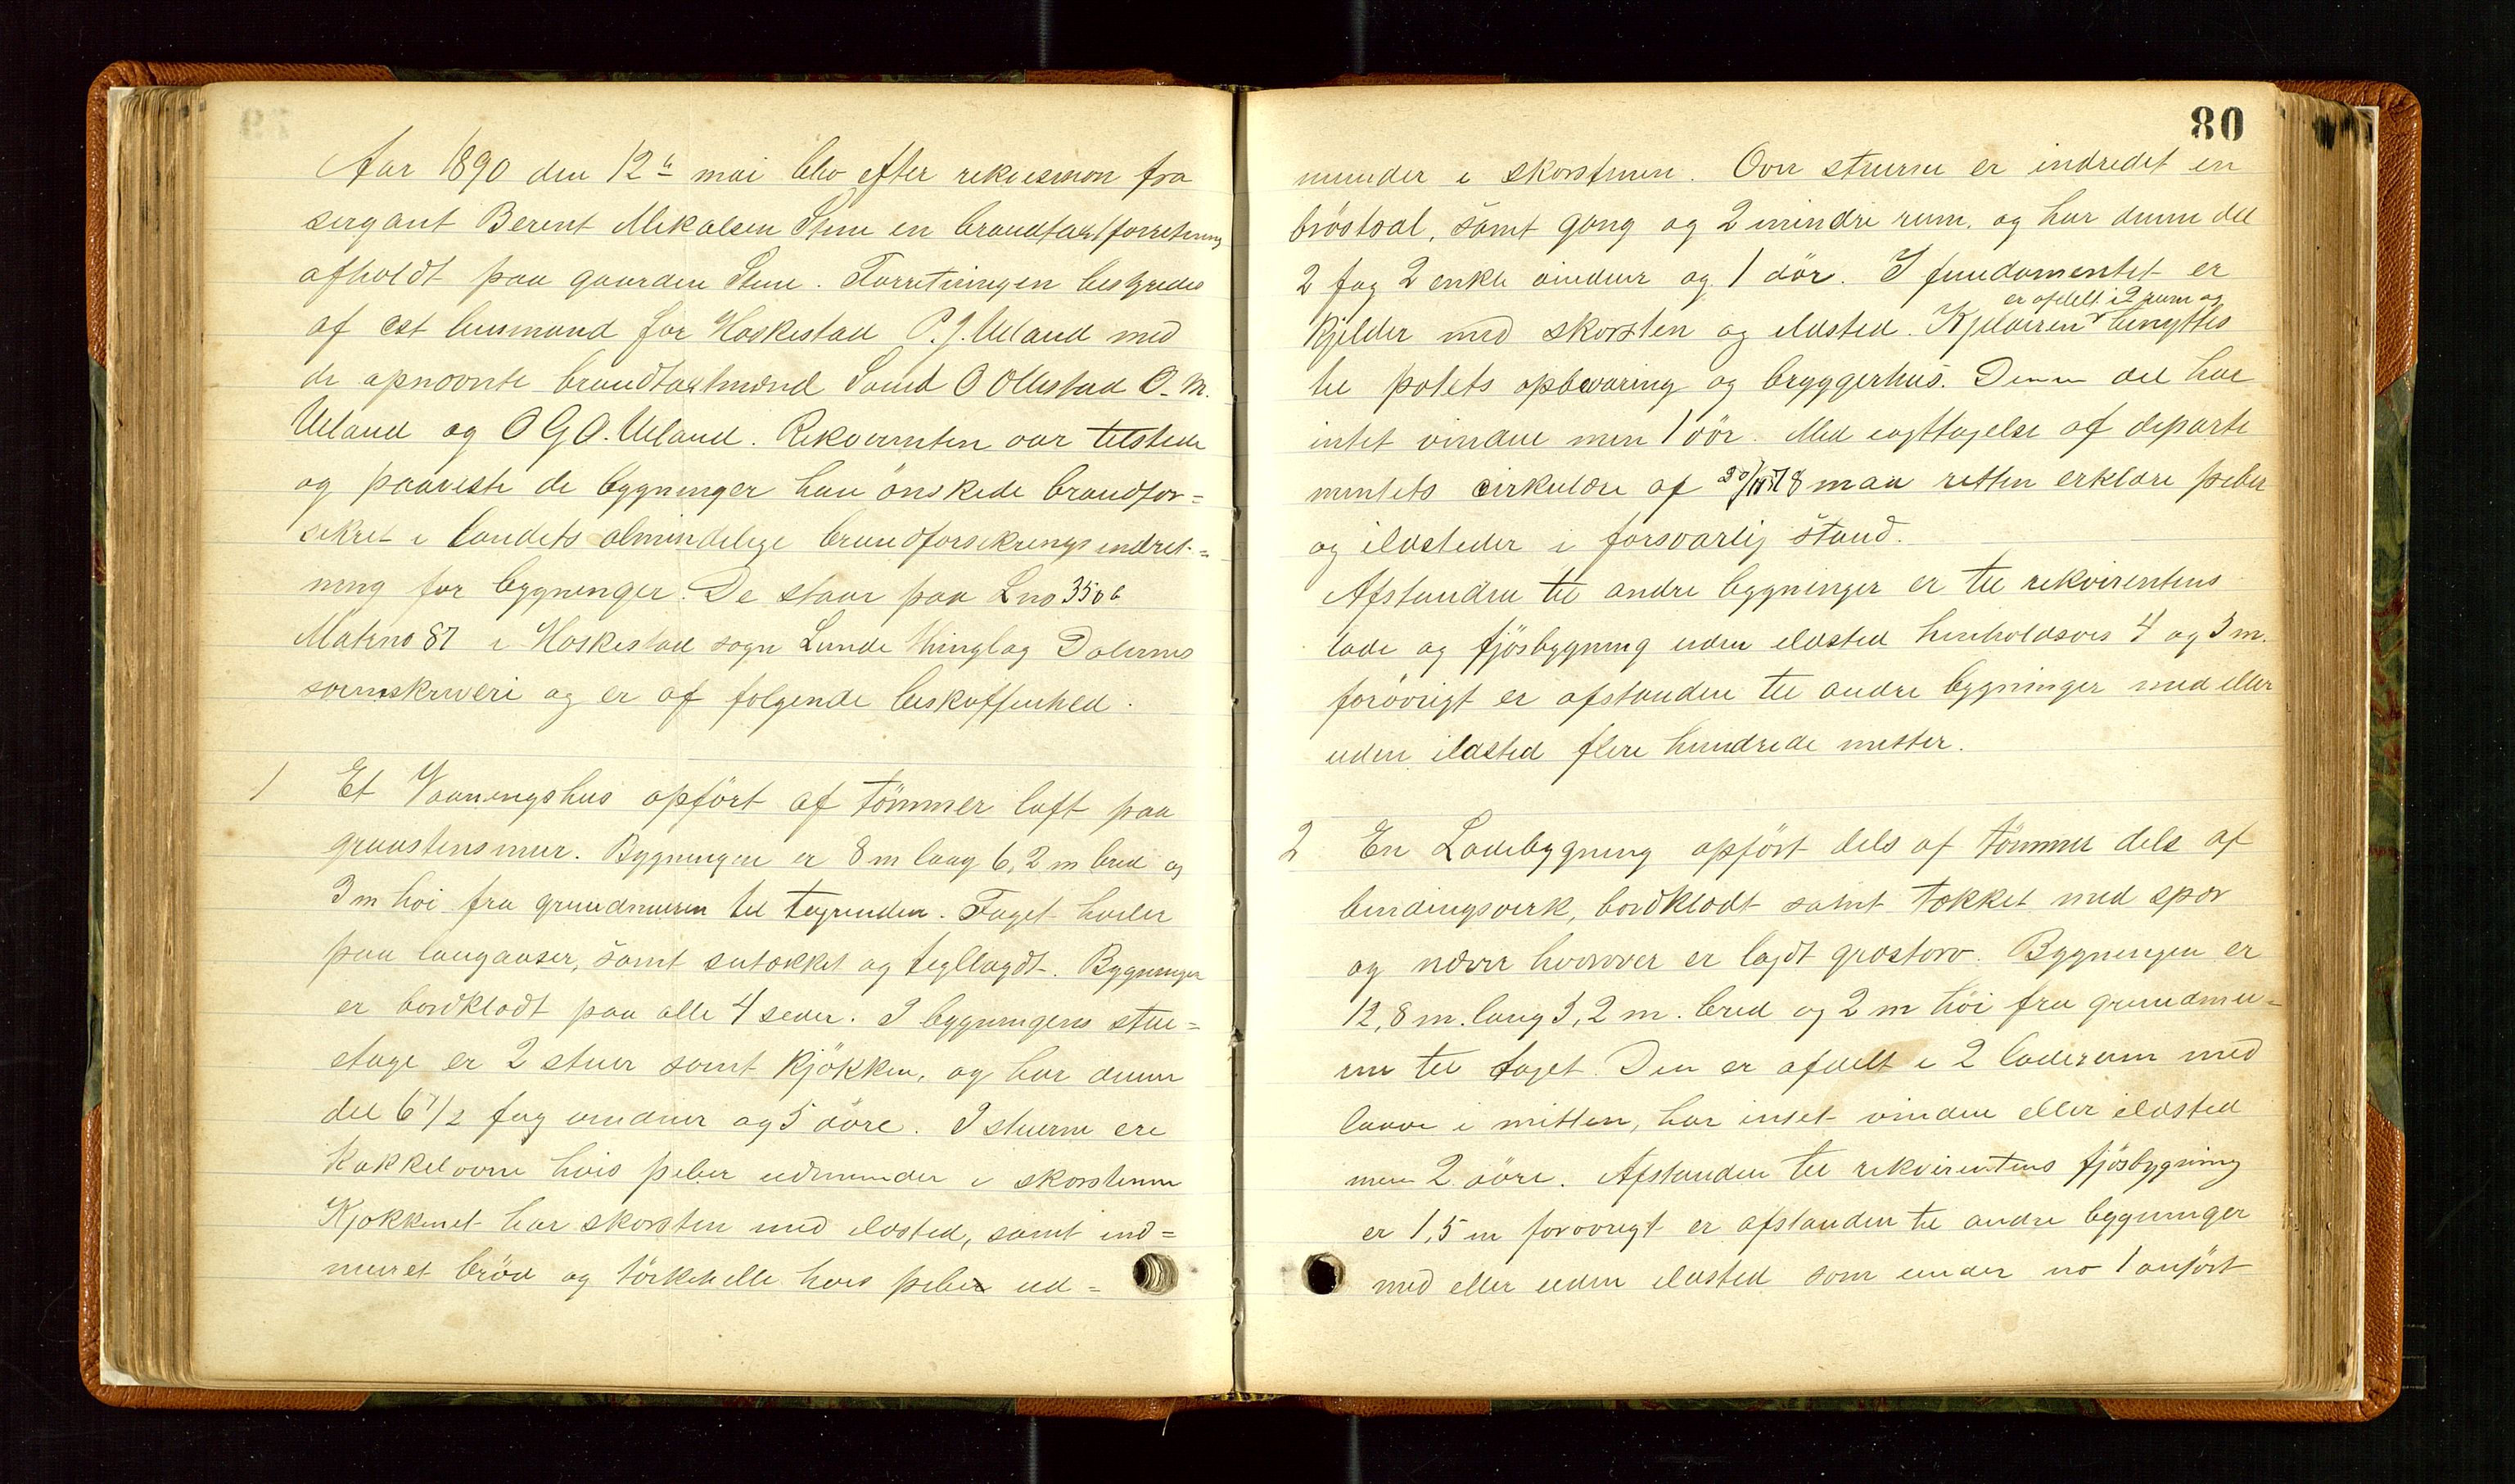 Aar 1890 den 12te mai blev efter rekvisision fra
sergant Berent Mikalsen Stene en brandtakstforretning
afholdt paa gaarden Stene. Forretningen bestyredes
af cst lensmand for Heskestad P. J. Ueland med
de opnævnte brandtakstmænd Samd O Ollestad O. M.
Ueland og O G O. Ueland. Rekvirenten var tilstede
og paaviste de bygninger han önskede brandfor=
sikret i landets almindelige brandforsikringsindret=
ning for bygninger. De staar paa Lno 350 b
Matrno 87 i Heskestad sogn Lunde thinglag Dalernes
sorenskriveri og er af følgende beskaffenhed.
1 Et Vaaningshus opfört af tömmer laft paa
graastensmur. Bygningen er 8 m lang 6,2 m bred og
3 m hoi fra grundmuren til tagrenden. Taget hviler
paa langaaser, samt sutækket og tegllagdt. Bygningen
er bordklædt paa alle 4 sider. I bygningens stue=
etage er 2 stuer samt kjökken, og har denne
del 6 1/2 fag vinduer og 5 döre. I stuerne ere
kakkelovne hvis piber udmunder i skorstenen
Kjøkkenet har skorsten med ildsted, samt ind=
muret bröd og törkehelle hvis pibe ud=
80
munder i skorstenen. Over stuerne er indredet en
bröstsal, samt gang og 2 mindre rum. og har denne del
2 fag 2 enkle vinduer og 1 dör. I fundamentet er
er afdelt i 2 rum og
kjelder med skorsten og ildsted. Kjelderen benyttes
til potets opbevaring og bryggerhus. Denne del har
intet vindue men 1 dör. Med iagttagelse af departe
mentets cirkulære af maa retten erklære piber
og ildsteder i forsvarlig stand.
Afstanden til andre bygninger er til rekvirentens
lade og fjösbygning uden ildsted henholdsvis 4 og 3 m.
forövrigt er afstanden til andre bygninger med eller
uden ildsted flere hundrede metter.
2 En Ladebygning opfört dels af tömmer dels af
bindingsverk, bordklædt samt tækket med spær
og næver hvorover er lagdt græstorv. Bygningen er
12,8 m. lang 3,2 m. bred og 2 m höi fra grundmu=
ren til taget. Den er afdelt i 2 laderum med
laave i mitten, har intet vindue eller ildsted
men 2 döre. Afstanden til rekvirentens fjösbygning
er 1,5 m forovrigt er afstanden til andre bygninger
med eller uden ildsted som under no 1 anfört